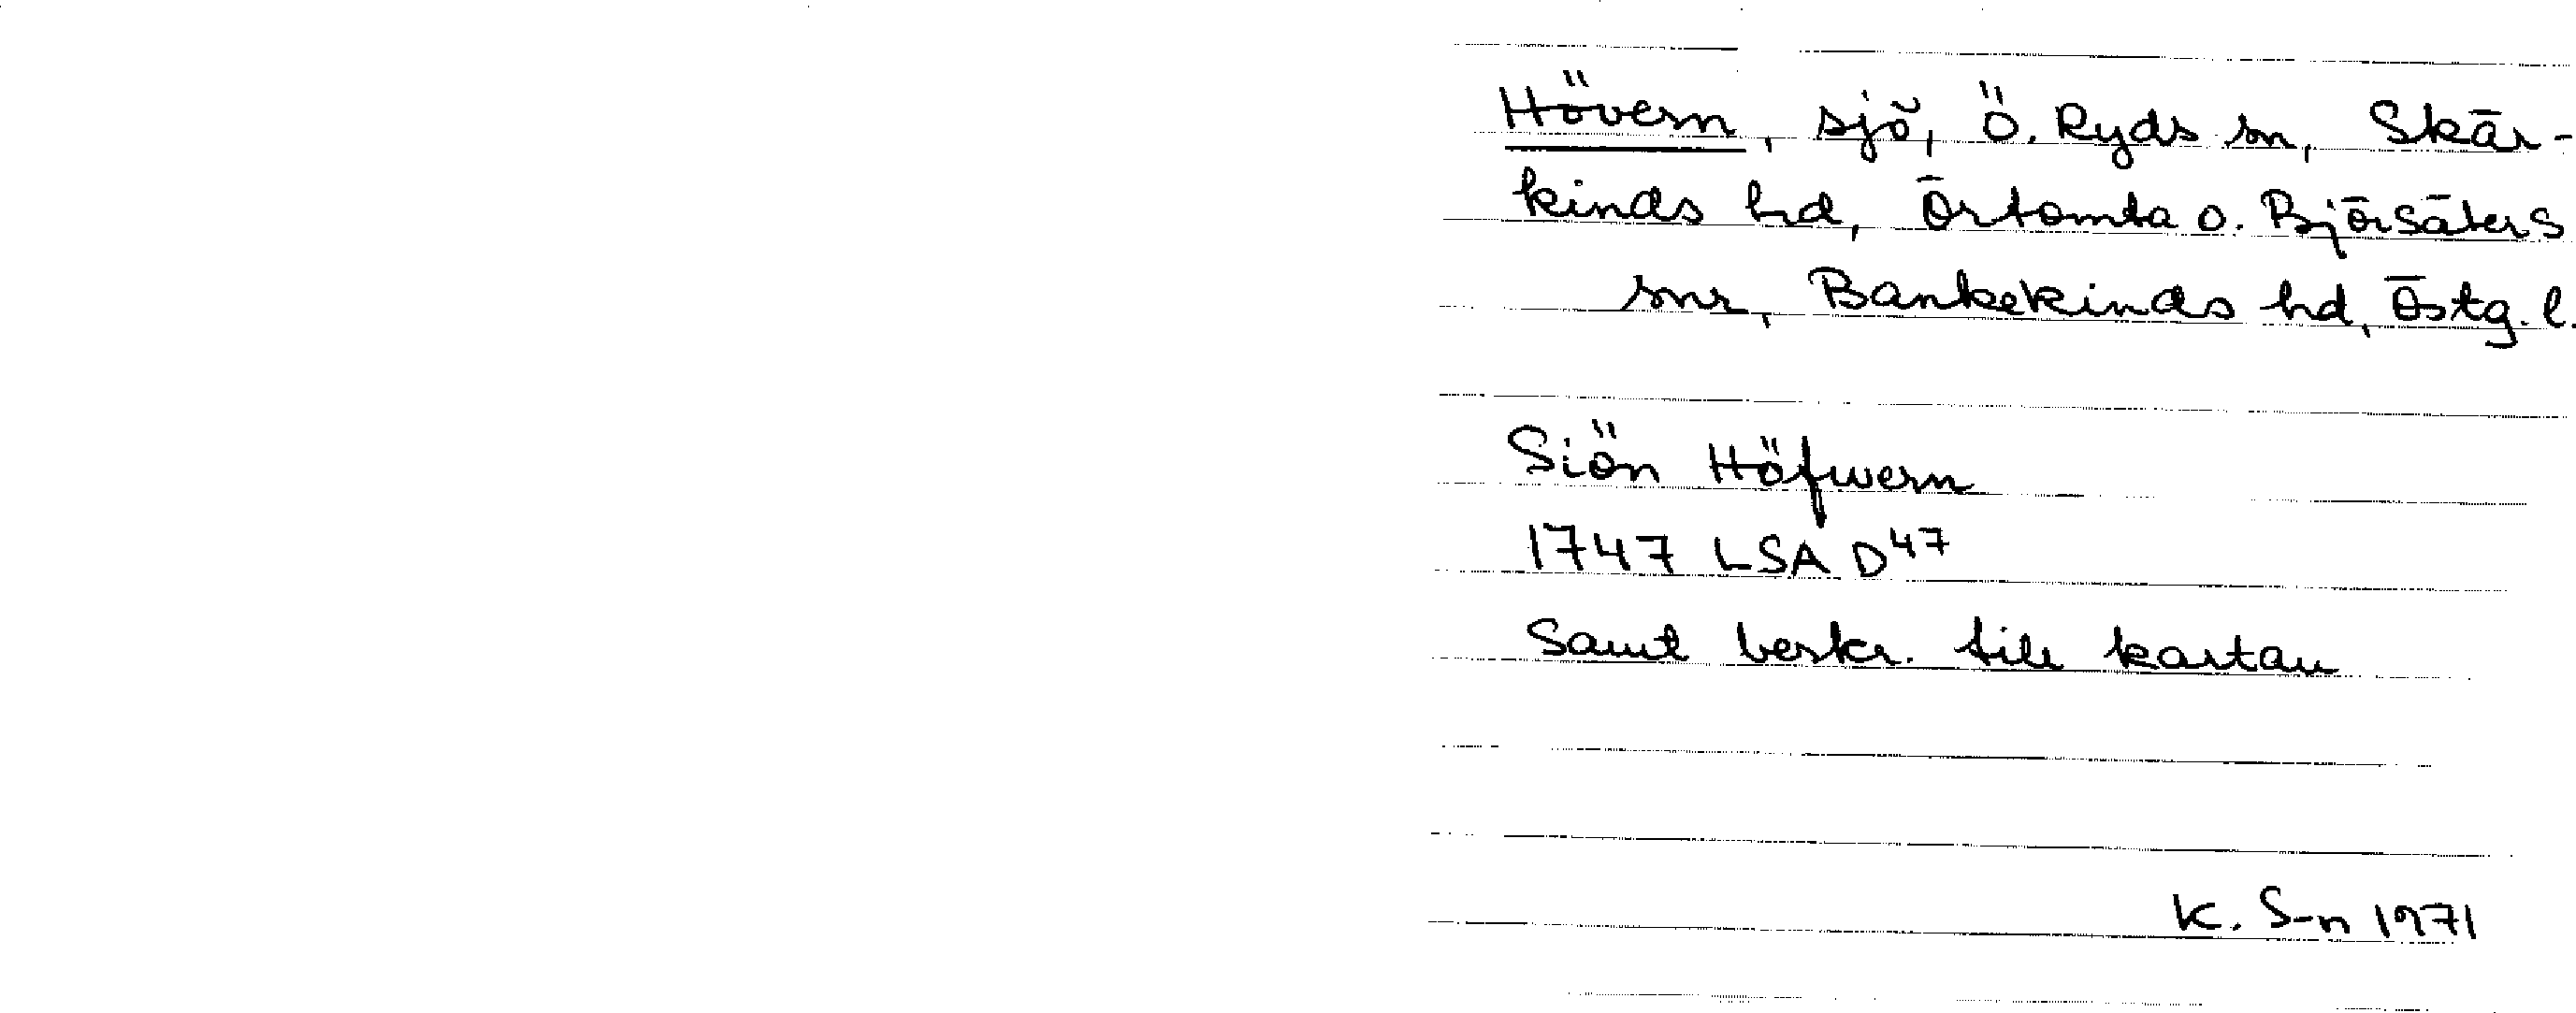 Hövern, sjö, Ö. Ryds sn, Skär-
kinds hd, Örtomta o. Björsäters
snr, Bankekinds hd, Östg. l.
Siön Höfwern
1747 LSA D47
Samt beskr. till kartan
K. S-n 1971